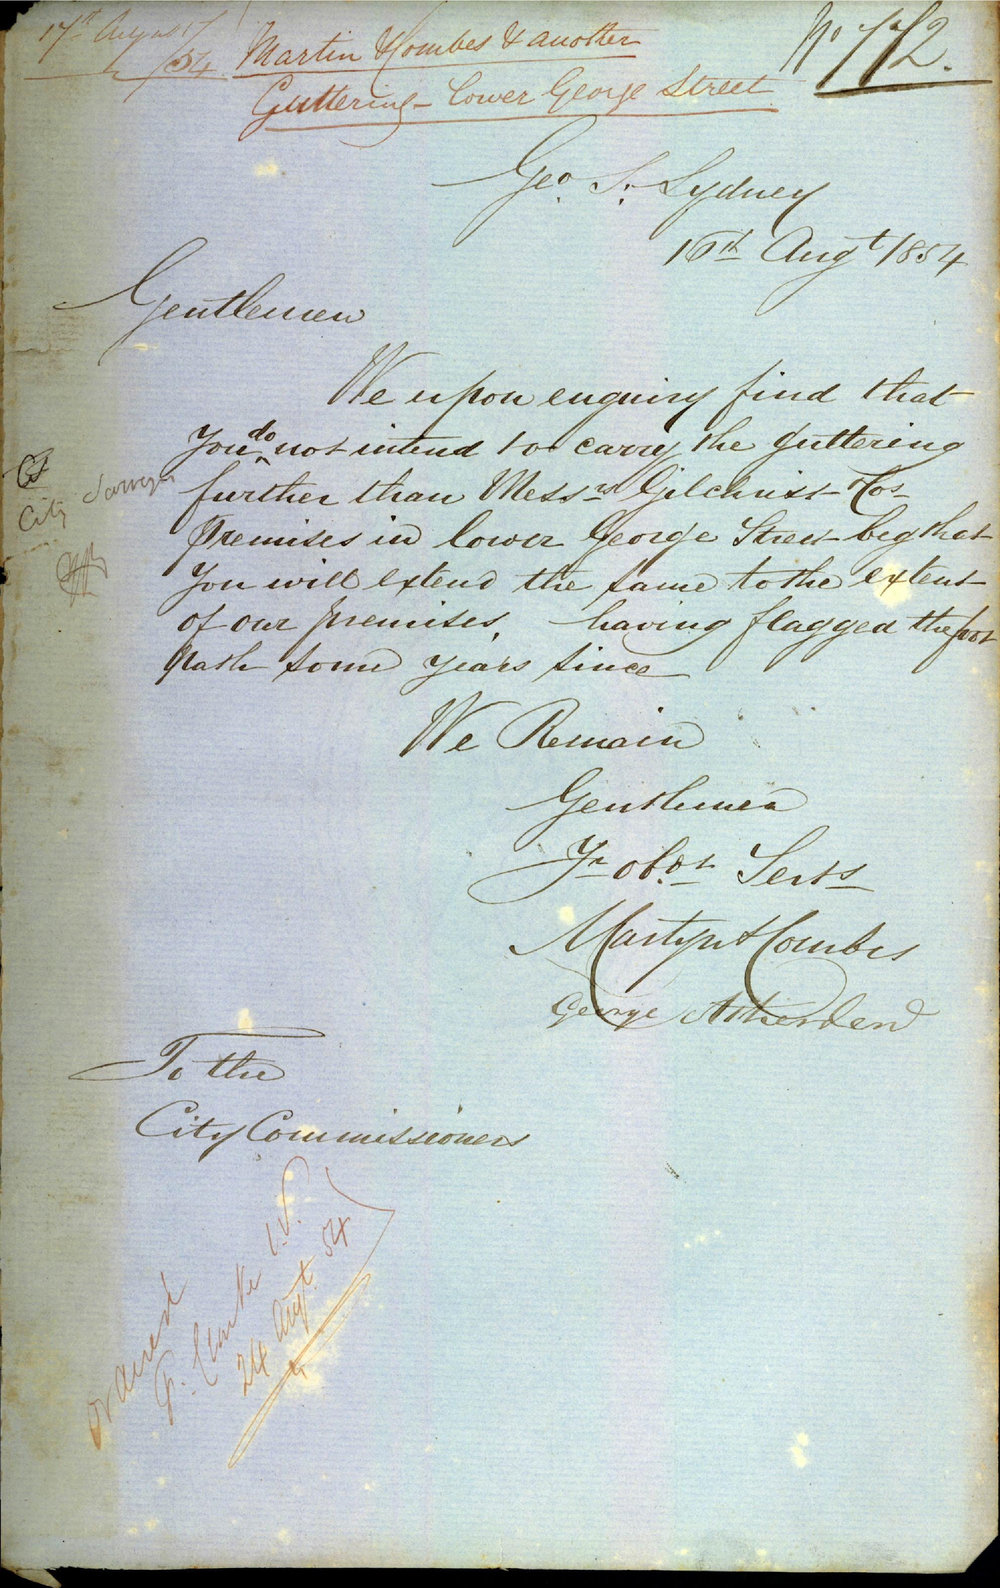 17th August
/54. Martin & Combes & another
No 772.
Guttering - Lower George Street
Geo. S. Sydney
16th Augt 1854
Gentlemen
We upon enquiry find that
You do not intend to carry the guttering
further than Messrs Gilchrist & Cos
premises in lower George Street beg that
You will extend the same to the extent
of our premises, having flagged the foot
path some years since
City Surveyor
We Remain
Gentlemen
Yr obdt Servts
Martyn & Combes
George Atherden
To the
City Commissioners
Ordered
24 Augt 54